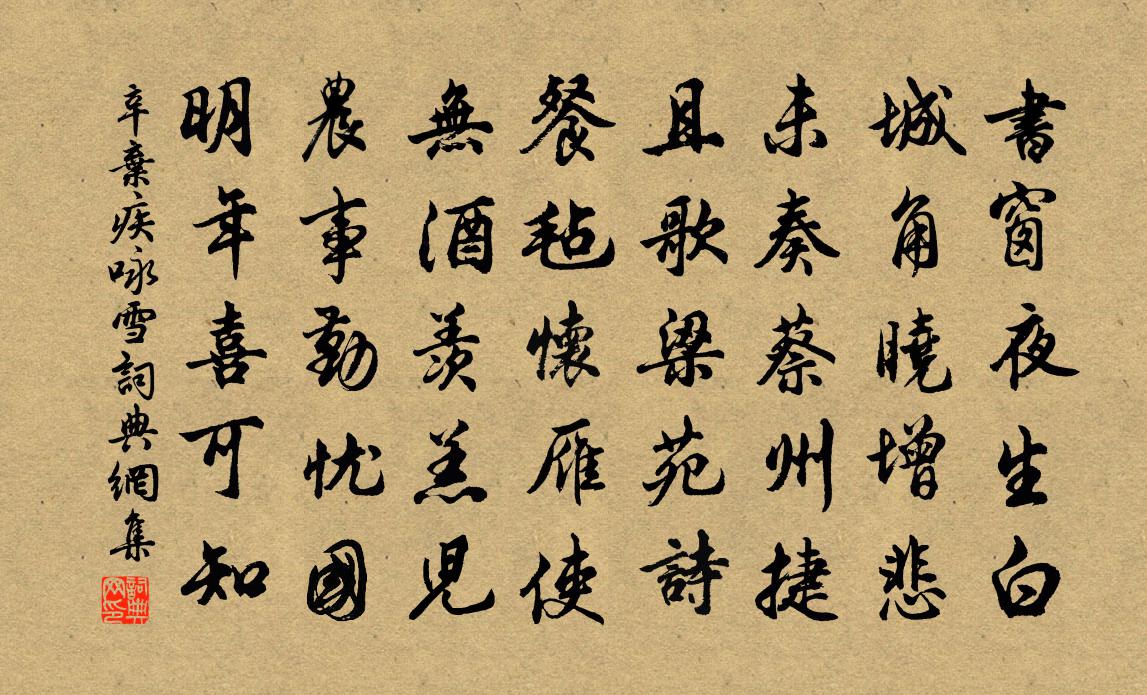 書窗夜生白
城角曉增悲
未奏蔡州捷
且歌梁苑詩
餐毡懷雁使
無酒羨羔児
農事勤忧國
明年喜可知
辛棄疾咏雪詞典網集
詞典网印